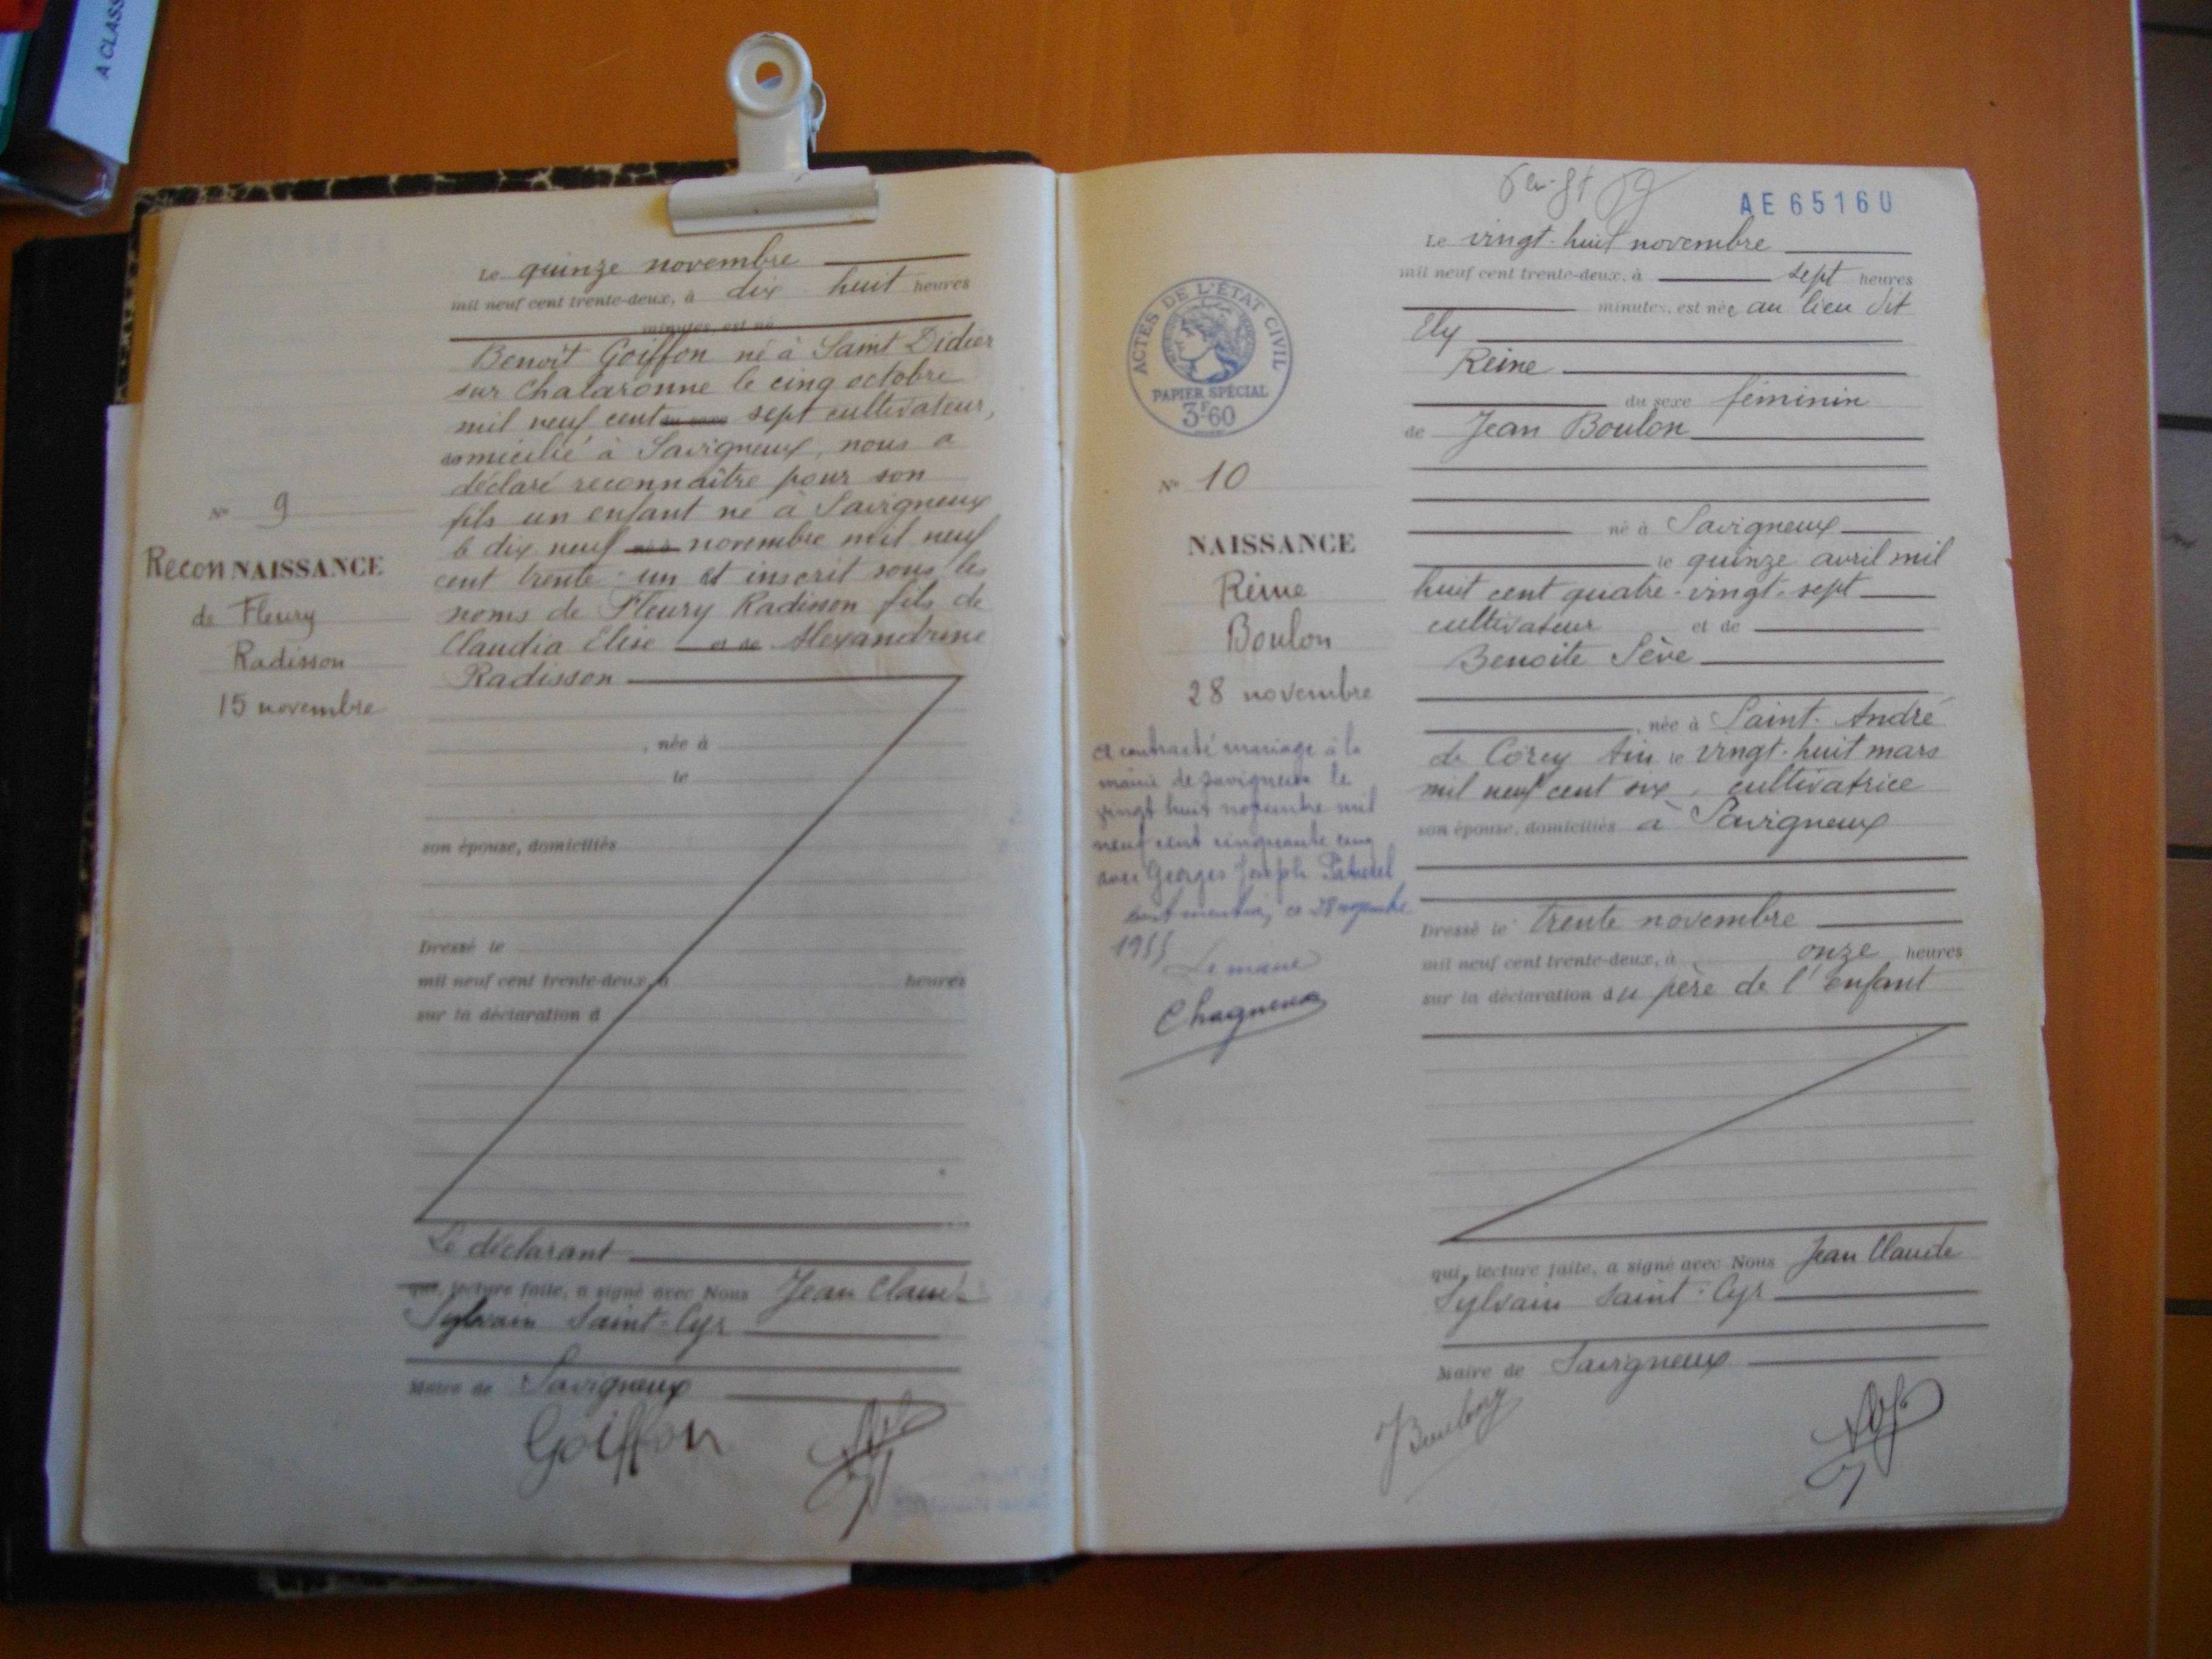 A CLASS
Le quinze novembre
mil neuf cent trente-deux, à dix huit heures
minutes, est né
Benoît Goiffon né à Saint Didier
sur Chalaronne le cinq octobre
mil neuf cent du sexe sept cultivateur,
domicilié à Savigneux, nous a
déclaré reconnaître pour son
fils un enfant né à Savigneux
le dix neuf né à novembre mil neuf
cent trente-un et inscrit sous les
noms de Fleury Radisson fils de
Claudia Elise et de Alexandrine
Radisson
, née à
le
son épouse, domiciliés
Dressé le
mil neuf cent trente-deux, à heures
sur la déclaration d
Le déclarant
qui, lecture faite, a signé avec Nous Jean Claude
Sylvain Saint-Cyr
Maire de Savigneux
Goiffon
N° 9
ReconNAISSANCE
de Fleury
Radisson
15 novembre
AE 65160
ACTES DE L'ÉTAT CIVIL
PAPIER SPÉCIAL
3F60
N° 10
NAISSANCE
Reine
Boulon
28 novembre
a contracté mariage à la
mairie de Savigneux le
vingt huit novembre mil
neuf cent cinquante cinq
avec Georges Joseph
mention, ce 28 novembre
1955
Le maire
Chagneux
Le vingt-huit novembre
mil neuf cent trente-deux, à sept heures
minutes, est née au lieu dit
Ely
Reine
du sexe féminin
de Jean Boulon
né à Savigneux
le quinze avril mil
huit cent quatre-vingt-sept
cultivateur et de
Benoîte Sève
, née à Saint-André
de Corcy Ain le vingt-huit mars
mil neuf cent six, cultivatrice
son épouse, domiciliés à Savigneux
Dressé le trente novembre
mil neuf cent trente-deux, à onze heures
sur la déclaration du père de l'enfant
qui, lecture faite, a signé avec Nous Jean Claude
Sylvain Saint-Cyr
Maire de Savigneux
JBoulon